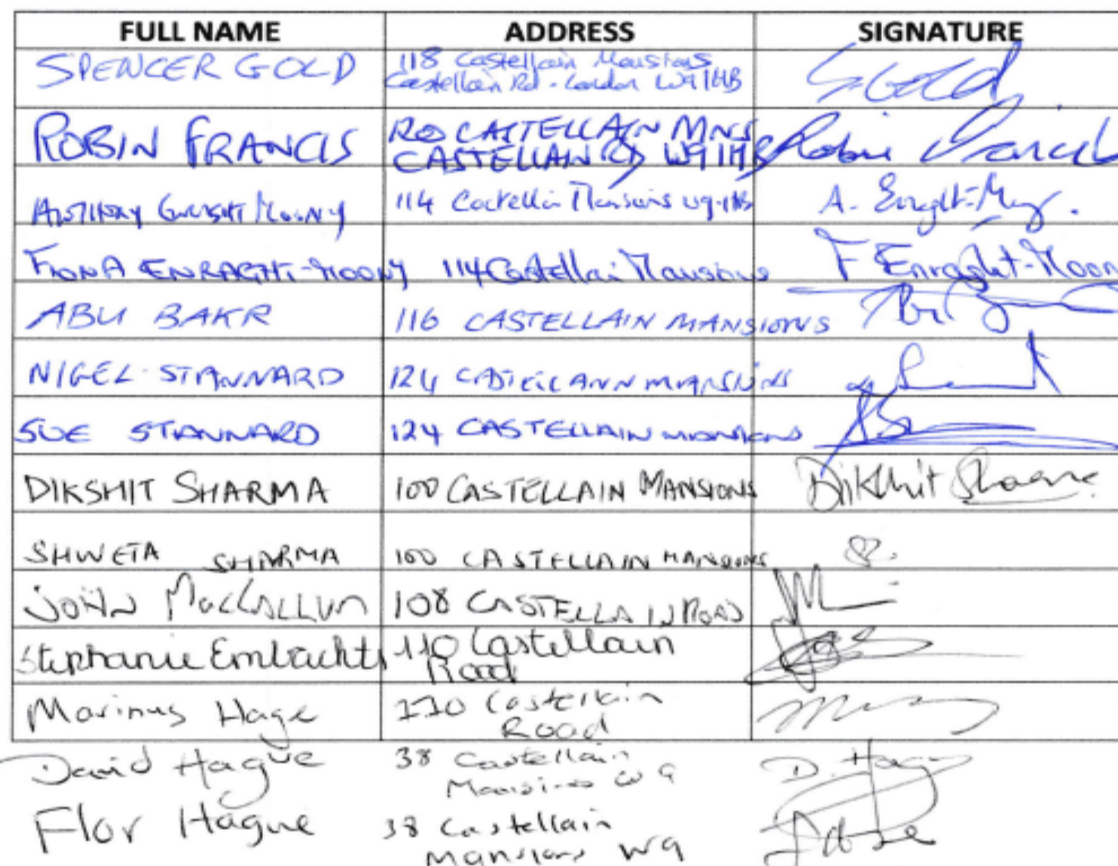 FULL NAME ADDRESS SIGNATURE
SPENCER GOLD 118 Castellain Mansions
Castellain Rd - London W9 1HB S Gold
ROBIN FRANCIS CASTELLAIN MNS
CASTELLAIN RD W9 1HB Robin Francis
114 Castellain Mansions W9 1HB A. Enraght-Moony.
FIONA ENRAGHT-MOONY 114 Castellain Mansions F Enraght-Moony
ABU BAKR 116 CASTELLAIN MANSIONS
NIGEL STANNARD 124 CASTELLAIN MANSIONS
SUE STANNARD 124 CASTELLAIN MANSIONS
DIKSHIT SHARMA 100 CASTELLAIN MANSIONS Dikshit Sharma
SHWETA SHARMA 100 CASTELLAIN MANSIONS S.
JOHN MacCALLUM 108 CASTELLAIN ROAD
Stephanie Embrechts 110 Castellain
Road
Marinus Hage 110 Castellain
Road
David Hague 38 Castellain
Mansions W9 D. Hague
Flor Hague 38 Castellain
Mansions W9